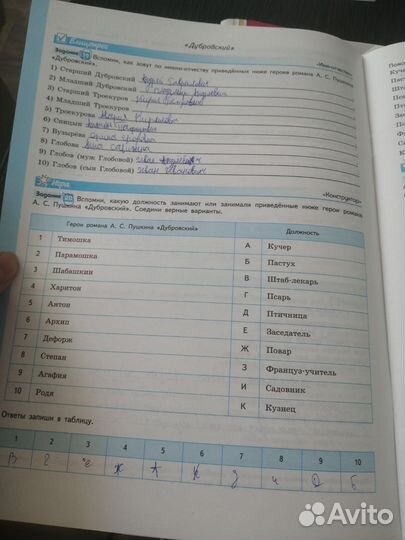 «Дубровский»
Викторина
«Имя-отчество»
Задание 19 Вспомни, как зовут по имени-отчеству приведённых ниже героев романа А. С.
«Дубровский».
1) Старший Дубровский
2) Младший Дубровский
3) Старший Троекуров
4) Младший Троекуров
5) Троекурова Мария Кириловна
6) Спицын
7) Бузырёва
8) Глобова Анна Савишна
9) (муж Глобовой) Иван Андреевич
10) (сын Глобовой) Иванович
Игра
«Конструктор»
Задание 20 Вспомни, какую должность занимают или занимали приведённые ниже герои романа
А. С. Пушкина «Дубровский». Соедини верные варианты.
Герои романа А. С. Пушкина «Дубровский» Должность
1 Тимошка А Кучер
2 Парамошка Б Пастух
3 Шабашкин В Штаб-лекарь
4 Харитон Г Псарь
5 Антон Д Птичница
6 Архип Е Заседатель
7 Дефорж Ж Повар
8 Степан З Француз-учитель
9 Агафия И Садовник
10 Родя К Кузнец
Ответы запиши в таблицу.
1 2 3 4 5 6 7 8 9 10
В Г е ж А К з и Д Б
Avito